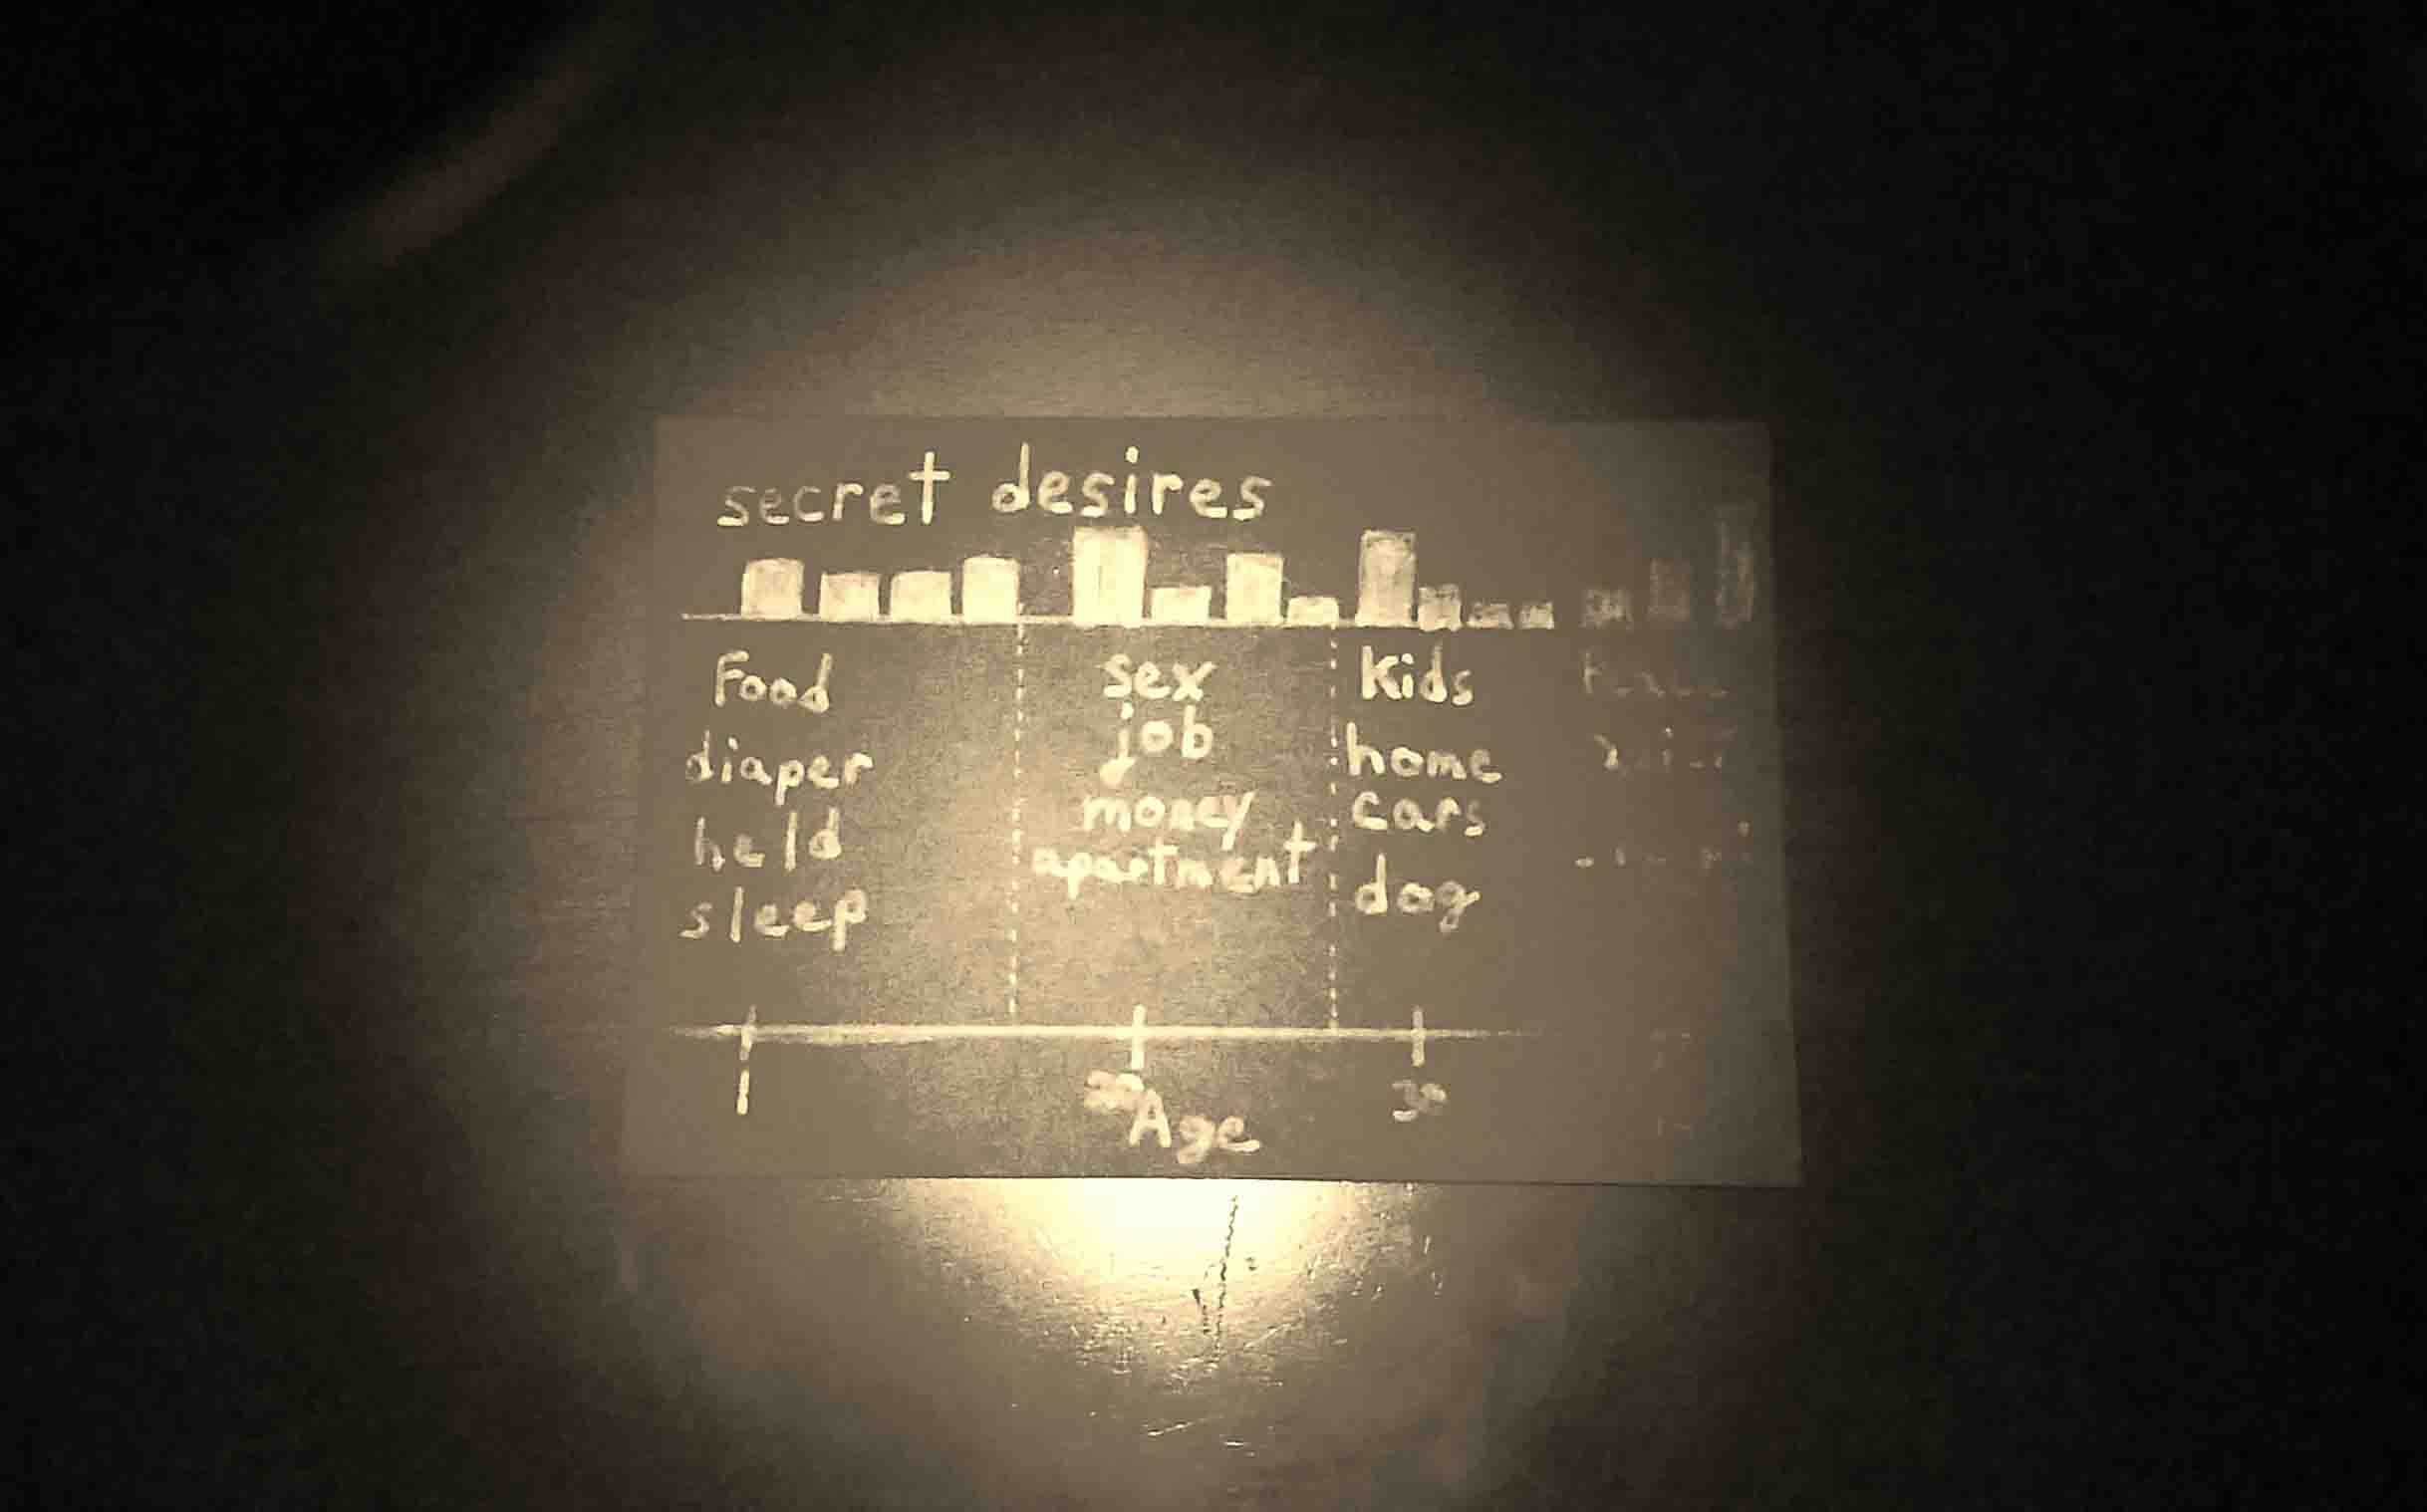 secret desires
Food
diaper
held
sleep
sex
job
money
apartment
Kids
home
cars
dog
1
20
30
Age